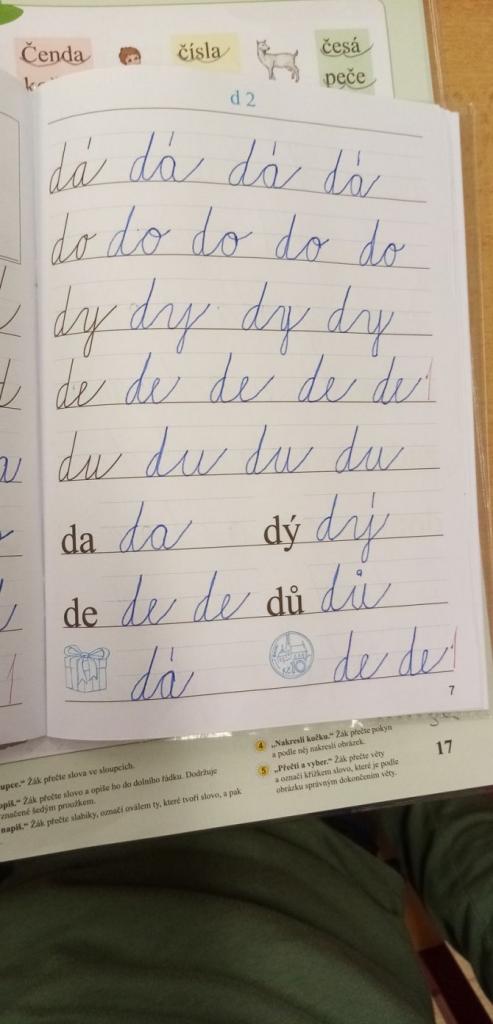 Čenda čísla česá
peče
d 2
dá dá dá dá
do do do do do
dy dy dy dy
de de de de de
du du du du
da da dý dý
de de de dů dů
dá de de
Kč 10
7
upce.“ Žák přečte slova ve sloupcích.
opiš.“ Žák přečte slovo a opíše ho do dolního řádku. Dodržuje
značené šedým proužkem.
napiš.“ Žák přečte slabiky, označí oválem ty, které tvoří slovo, a pak
4 „Nakresli kočku.“ Žák přečte pokyn
a podle něj nakreslí obrázek.
5 „Přečti a vyber.“ Žák přečte věty
a označí křížkem slovo, které je podle
obrázku správným dokončením věty.
17